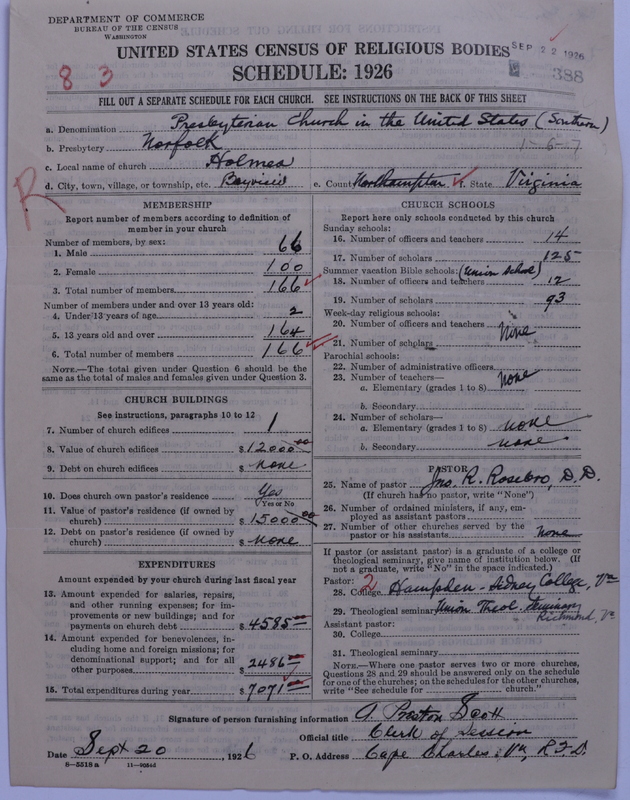 DEPARTMENT OF COMMERCE
BUREAU OF THE CENSUS
WASHINGTON
SEP 22 1926
UNITED STATES CENSUS OF RELIGIOUS BODIES
SCHEDULE: 1926
8 3
388
FILL OUT A SEPARATE SCHEDULE FOR EACH CHURCH. SEE INSTRUCTIONS ON THE BACK OF THIS SHEET
a. Denomination Presbyterian Church in the United States (Southern)
b. Presbytery Norfolk 1-6-7
c. Local name of church Holmes
d. City, town, village, or township, etc. e. County Northampton f. State Virginia
R
MEMBERSHIP
Report number of members according to definition of
member in your church
Number of members, by sex:
1. Male 66
2. Female 100
3. Total number of members 166
Number of members under and over 13 years old:
4. Under 13 years of age 2
5. 13 years old and over 164
6. Total number of members 166
NOTE.—The total given under Question 6 should be
same as the total of males and females given under Question 3.
CHURCH BUILDINGS
See instructions, paragraphs 10 to 12
7. Number of church edifices 1
8. Value of church edifices $12000.00
9. Debt on church edifices $ none
10. Does church own pastor's residence Yes
Yes or No
11. Value of pastor's residence (if owned by
church) $15000.00
12. Debt on pastor's residence (if owned by
church) $ none
EXPENDITURES
Amount expended by your church during last fiscal year
13. Amount expended for salaries, repairs,
and other running expenses; for im-
provements or new buildings; and for
payments on church debt $4585
14. Amount expended for benevolences, in-
cluding home and foreign missions; for
denominational support; and for all
other purposes $2486
15. Total expenditures during year $7071
CHURCH SCHOOLS
Report here only schools conducted by this church
Sunday schools:
16. Number of officers and teachers 14
17. Number of scholars 125
Summer vacation Bible schools: (Union School)
18. Number of officers and teachers 12
19. Number of scholars 93
Week-day religious schools:
20. Number of officers and teachers
None
21. Number of scholars
Parochial schools:
22. Number of administrative officers
23. Number of teachers— none
a. Elementary (grades 1 to 8)
b. Secondary
24. Number of scholars—
a. Elementary (grades 1 to 8) none
b. Secondary none
PASTOR
25. Name of pastor Jno. R. Rosebro, D.D.
(If church has no pastor, write "None")
26. Number of ordained ministers, if any, em-
ployed as assistant pastors
27. Number of other churches served by the
pastor or his assistants None
If pastor (or assistant pastor) is a graduate of a college or
theological seminary, give name of institution below. (If
not a graduate, write "No" in the space indicated.)
Pastor: 2
28. College Hampden-Sidney College, Va
29. Theological seminary Union Theol. Seminary
Richmond, Va
Assistant pastor:
30. College
31. Theological seminary
NOTE.—Where one pastor serves two or more churches,
Questions 28 and 29 should be answered only on the schedule
for one of the churches; on the schedules for the other churches,
write "See schedule for church."
Signature of person furnishing information A. Preston Scott
Official title Clerk of Session
Date Sept 20, 1926 P. O. Address Cape Charles, Va, R.F.D.
8-5318a 11-9054d